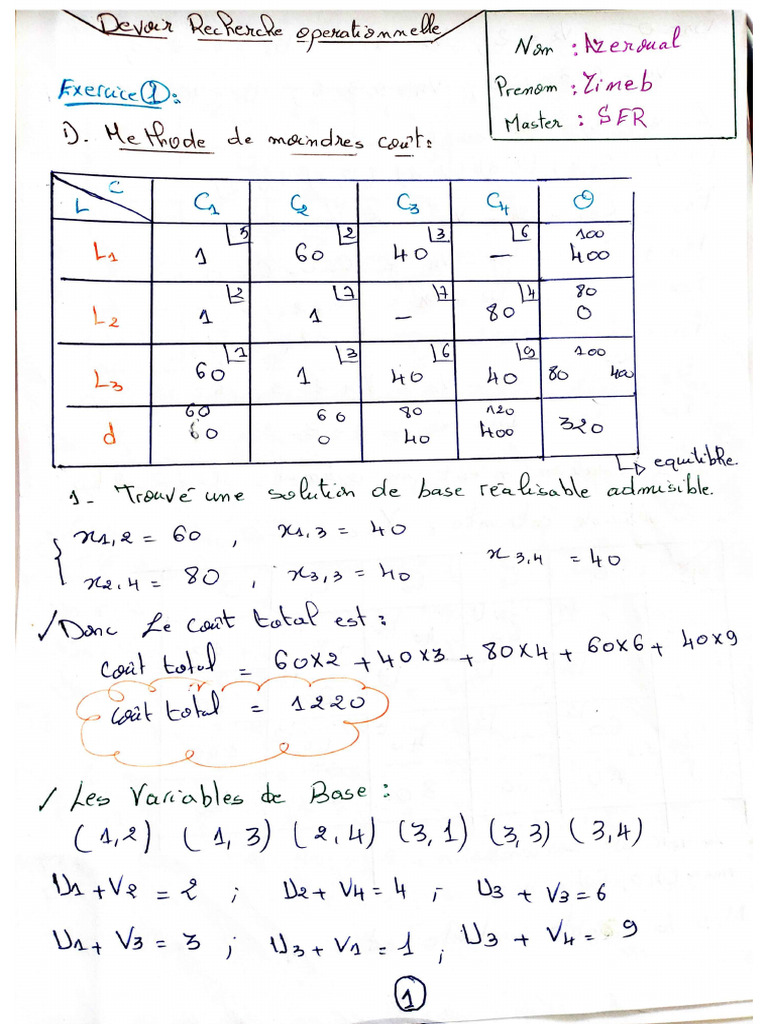 Devoir Recherche operationnelle
Nom : Azeroual
Prenom : Zineb
Master : SER
Exercice ① :
1). Methode de moindres coût :
L C C1 C2 C3 C4 O
L1 1 5 60 2 40 3 – 6 100 400
L2 1 3 1 7 – 7 80 4 80 0
L3 60 1 1 3 40 6 40 9 100 80 400
d 60 60 60 0 80 40 120 400 320
equilibre.
1- Trouvé une solution de base réalisable admisible.
x1,2 = 60 , x1,3 = 40
x2,4 = 80 , x3,3 = 40 x3,4 = 40
✓ Donc Le coût total est :
coût total = 60x2 + 40x3 + 80x4 + 60x6 + 40x9
coût total = 1220
✓ Les Variables de Base :
(1,2) (1,3) (2,4) (3,1) (3,3) (3,4)
U1 + V2 = 2 ; U2 + V4 = 4 ; U3 + V3 = 6
U1 + V3 = 3 ; U3 + V1 = 1 ; U3 + V4 = 9
①